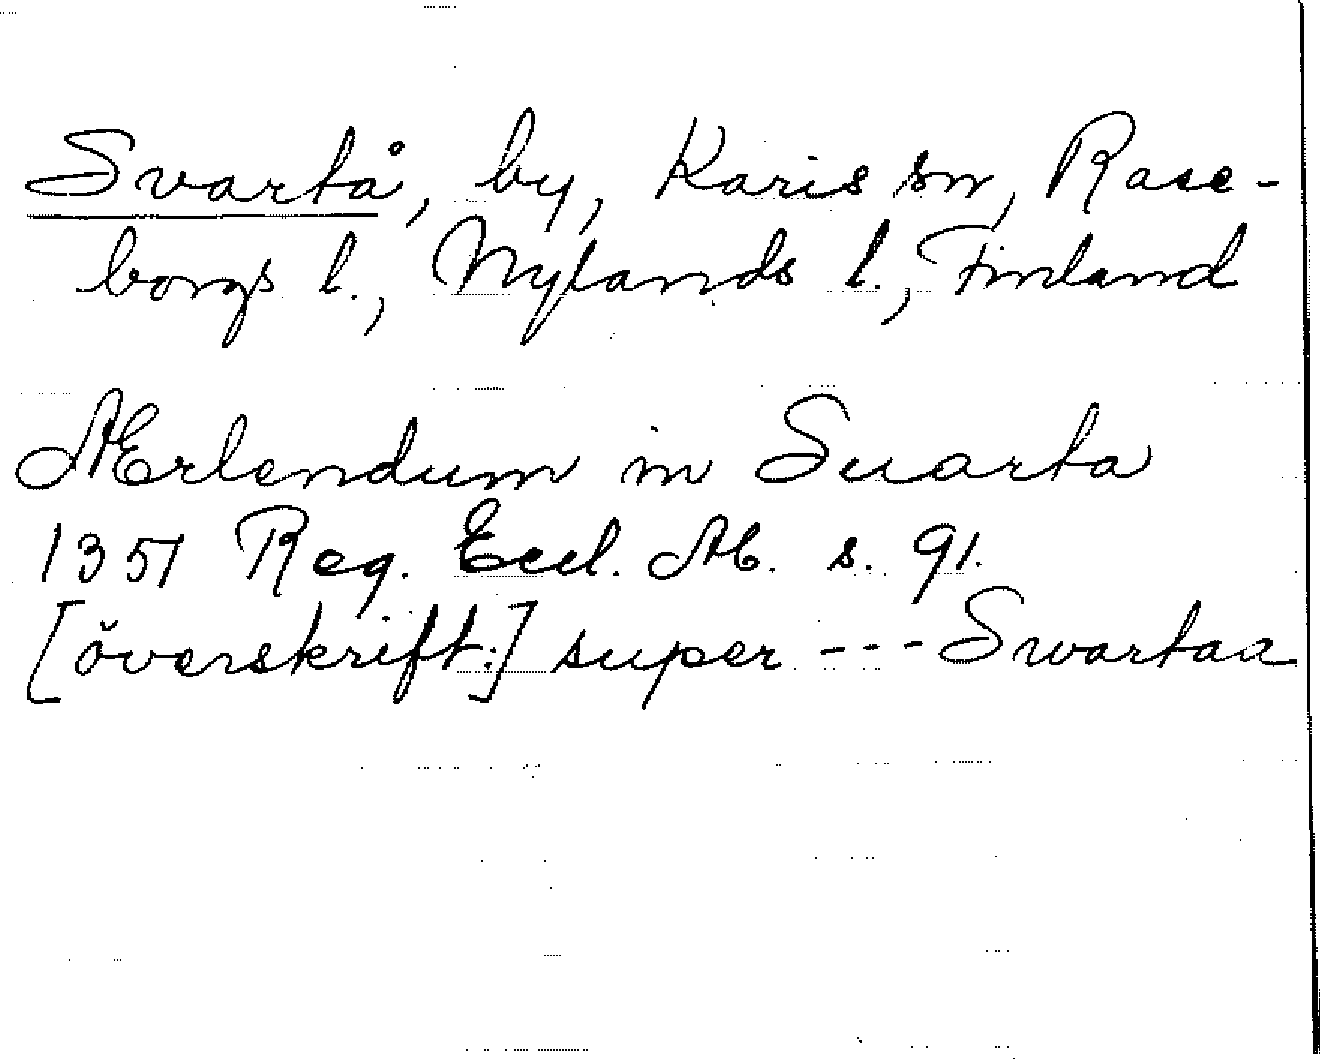 Svartå, by, Karis sn, Rase-
borgs l., Nylands l., Finland
Ærlendum in Suarta
1351 Reg. Eccl. Ab. s. 91.
[överskrift:] super --- Swartaa